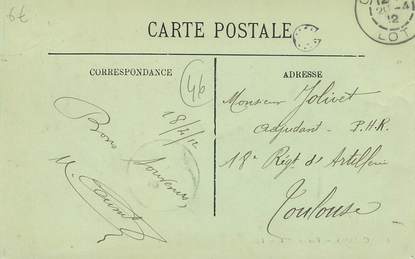 6€
CARTE POSTALE
12
20-4
12
LOT
CORRESPONDANCE
46
ADRESSE
18/4/12
Bons
Souvenirs
Monsieur Jolivet
Adjudant - P.H.R.
18e Régt d'Artillerie
Toulouse